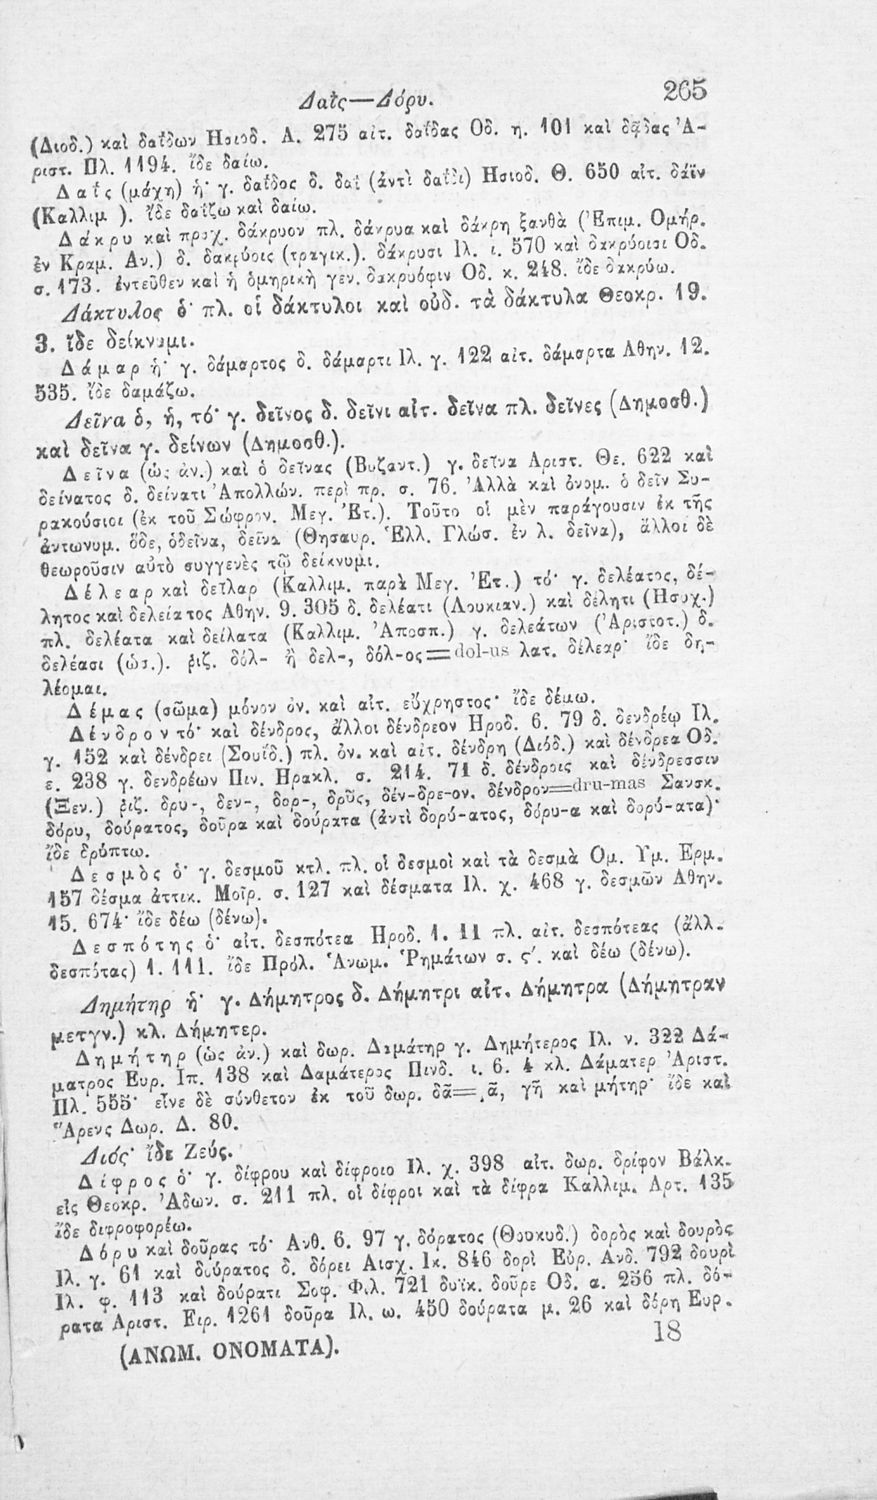 Δαῒς—Δόρυ.
265
(Διοδ.) καὶ δαΐδων Ησιοδ. Α. 275 αἰτ. δαΐδας Οδ. η. 101 καὶ δᾷδας Ἀ-
ριστ. Πλ. 1194. ἴδε δαίω.
Δαΐς (μάχη) ἡ· γ. δαΐδος δ. δαῒ (ἀντὶ δαΐδι) Ησιοδ. Θ. 650 αἰτ. δάϊν
(Καλλιμ ). ἴδε δαΐζω καὶ δαίω.
Δάκρυ καὶ προχ. δάκρυον πλ. δάκρυα καὶ δάκρη ξανθὰ (Ἐπιμ. Ομήρ.
ἐν Κραμ. Αν.) δ. δακρύοις (τραγικ.). δάκρυσι Ιλ. ι. 570 καὶ δακρύοισι Οδ.
σ. 173. ἐντεῦθεν καὶ ἡ ὁμηρικὴ γεν. δακρυόφιν Οδ. κ. 248. ἴδε δακρύω.
Δάκτυλος ὁ· πλ. οἱ δάκτυλοι καὶ οὐδ. τὰ δάκτυλα Θεοκρ. 19.
3. ἴδε δείκνυμι.
Δάμαρ ἡ· γ. δάμαρτος δ. δάμαρτι Ιλ. γ. 122 αἰτ. δάμαρτα Αθην. 12.
535. ἴδε δαμάζω.
Δεῖνα ὁ, ἡ, τό· γ. δεῖνος δ. δεῖνι αἰτ. δεῖνα πλ. δεῖνες (Δημοσθ.)
καὶ δεῖνα γ. δείνων (Δημοσθ.).
Δεῖνα (ὡς ἀν.) καὶ ὁ δεῖνας (Βυζαντ.) γ. δεῖνα Αριστ. Θε. 622 καὶ
δείνατος δ. δείνατι Ἀπολλών. περὶ πρ. σ. 76. Ἀλλὰ καὶ ὀνομ. ὁ δεῖν Συ-
ρακούσιοι (ἐκ τοῦ Σώφρον. Μεγ. Ἐτ.). Τοῦτο οἱ μὲν παράγουσιν ἐκ τῆς
ἀντωνυμ. ὅδε, ὁδεῖνα, δεῖνα (Θησαυρ. Ἑλλ. Γλώσ. ἐν λ. δεῖνα), ἄλλοι δὲ
θεωροῦσιν αὐτὸ συγγενὲς τῷ δείκνυμι.
Δέλεαρ καὶ δεῖλαρ (Καλλιμ. παρὰ Μεγ. Ἐτ.) τό· γ. δελέατος, δέ-
λητος καὶ δελείατος Αθην. 9. 305 δ. δελέατι (Λουκιαν.) καὶ δέλητι (Ησυχ.)
πλ. δελέατα καὶ δείλατα (Καλλιμ. Ἀποσπ.) γ. δελεάτων (Ἀριστοτ.) δ.
δελέασι (ὡσ.). ῥιζ. δολ- ἢ δελ-, δόλ-ος=dol-us λατ. δέλεαρ· ἴδε δη-
λέομαι.
Δέμας (σῶμα) μόνον ὀν. καὶ αἰτ. εὔχρηστος· ἴδε δέμω.
Δένδρον τό· καὶ δένδρος, ἄλλοι δένδρεον Ηροδ. 6. 79 δ. δενδρέῳ Ιλ.
γ. 152 καὶ δένδρει (Σουΐδ.) πλ. ὀν. καὶ αἰτ. δένδρη (Διόδ.) καὶ δένδρεα Οδ.
ε. 238 γ. δενδρέων Πιν. Ηρακλ. σ. 214. 71 δ. δένδροις καὶ δένδρεσσιν
(Ξεν.) ῥιζ. δρυ-, δεν-, δορ-, δρῦς, δέν-δρε-ον. δένδρον=dru-mas Σανσκ.
δόρυ, δούρατος, δοῦρα καὶ δούρατα (ἀντὶ δορύ-ατος, δόρυ-α καὶ δορύ-ατα)·
ἴδε δρύπτω.
Δεσμὸς ὁ· γ. δεσμοῦ κτλ. πλ. οἱ δεσμοὶ καὶ τὰ δεσμὰ Ομ. Υμ. Ερμ.
157 δέσμα ἀττικ. Μοῖρ. σ. 127 καὶ δέσματα Ιλ. χ. 468 γ. δεσμῶν Αθην.
15. 674· ἴδε δέω (δένω).
Δεσπότης ὁ· αἰτ. δεσπότεα Ηροδ. 1. 11 πλ. αἰτ. δεσπότεας (ἄλλ.
δεσπότας) 1. 111. ἴδε Πρόλ. Ἀνωμ. Ῥημάτων σ. ς΄. καὶ δέω (δένω).
Δημήτηρ ἡ· γ. Δήμητρος δ. Δήμητρι αἰτ. Δήμητρα (Δήμητραν
μετγν.) κλ. Δήμητερ.
Δημήτηρ (ὡς ἀν.) καὶ δωρ. Δαμάτηρ γ. Δημήτερος Ιλ. ν. 322 Δά-
ματρος Ευρ. Ιπ. 138 καὶ Δαμάτερος Πινδ. ι. 6. 4 κλ. Δάματερ Ἀριστ.
Πλ. 555· εἶνε δὲ σύνθετον ἐκ τοῦ δωρ. δᾶ=γᾶ, γῆ καὶ μήτηρ· ἴδε καὶ
Ἄρενς Δωρ. Δ. 80.
Διός· ἴδε Ζεύς.
Δίφρος ὁ· γ. δίφρου καὶ δίφροιο Ιλ. χ. 398 αἰτ. δωρ. δρίφον Βάλκ.
εἰς Θεοκρ. Ἀδων. σ. 211 πλ. οἱ δίφροι καὶ τὰ δίφρα Καλλιμ. Αρτ. 135
ἴδε διφροφορέω.
Δόρυ καὶ δοῦρας τό· Ανθ. 6. 97 γ. δόρατος (Θουκυδ.) δορὸς καὶ δουρὸς
Ιλ. γ. 61 καὶ δούρατος δ. δόρει Αισχ. Ικ. 846 δορὶ Εὐρ. Ανδ. 792 δουρὶ
Ιλ. φ. 113 καὶ δούρατι Σοφ. Φιλ. 721 δυϊκ. δοῦρε Οδ. α. 256 πλ. δό-
ρατα Αριστ. Ειρ. 1261 δοῦρα Ιλ. ω. 450 δούρατα μ. 26 καὶ δόρη Ευρ.
(ΑΝΩΜ. ΟΝΟΜΑΤΑ).
18